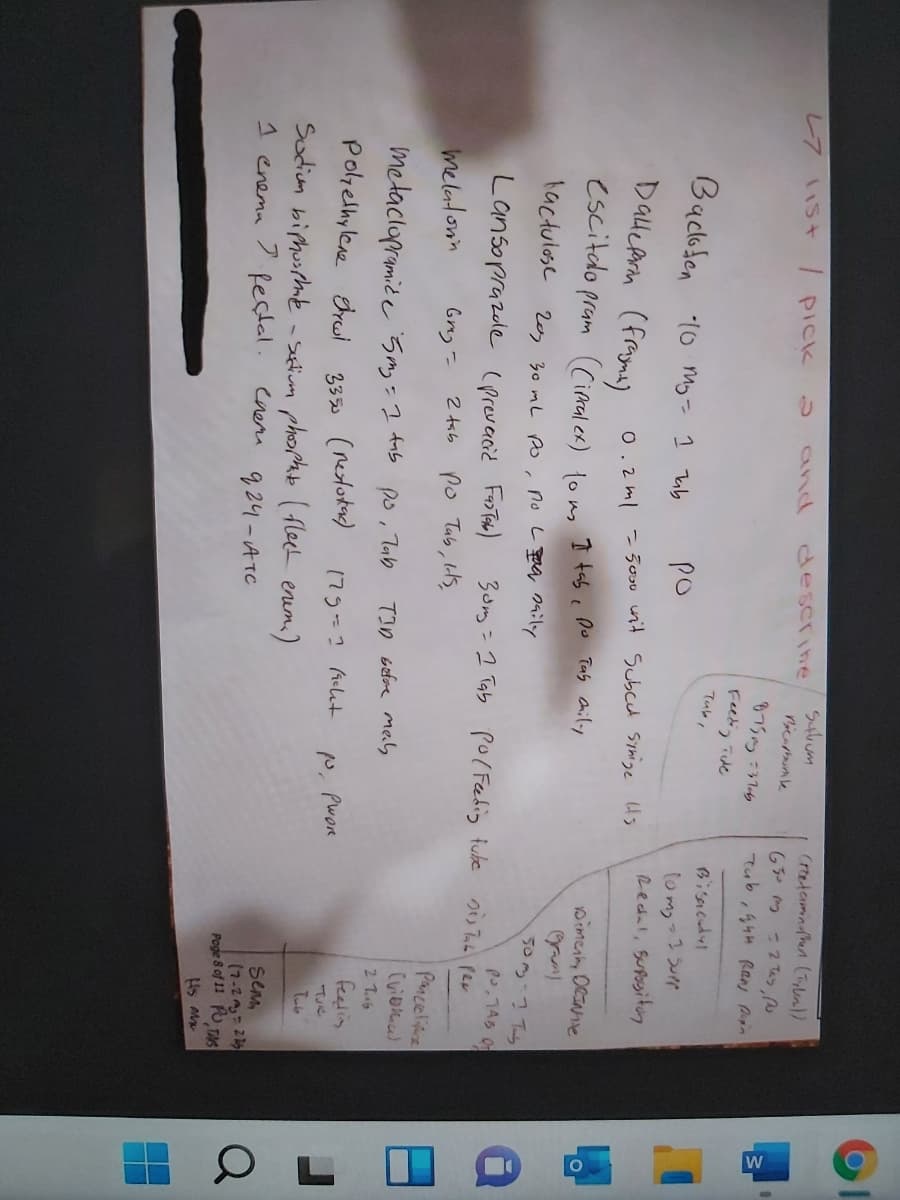 L7 list / pick 3 and describe
Baclofen 10 mg = 1 tab PO
Dalteparin (fragmin) 0.2 ml = 5000 unit subcut syringe HS
escitalopram (Cipralex) 10 mg 1 tab, PO Tab daily
lactulose 20g 30 mL PO, PO L daily
Lansoprazole (prevacid FasTab) 30mg = 1 Tab PO/Feeding tube disTab
melatonin 6mg = 2 tab PO Tab, HS,
metaclopramide 5mg = 1 tab PO, Tab TID before meals
Polyethylene glycol 3350 (restoralax) 17g = 1 packet PO, PWDR
Sodium biphosphate - sodium phosphate (fleet enema)
1 enema rectal. enema q24-ATC
Sodium
Bicarbonate
Feeding Tube
Tab,
(Tylenol)
650 mg = 2 tabs, PO
Tab, q4H PRN, pain
Bisacodyl
10 mg = 1 supp
Rectal, suppository
50 mg = 1 Tab
PO, TAB
PRN
2 Tab
feeding
Tube
Tab
Senna
17.2 mg = 2 tab
PO, TAB
HS
Page 8 of 11
W
O